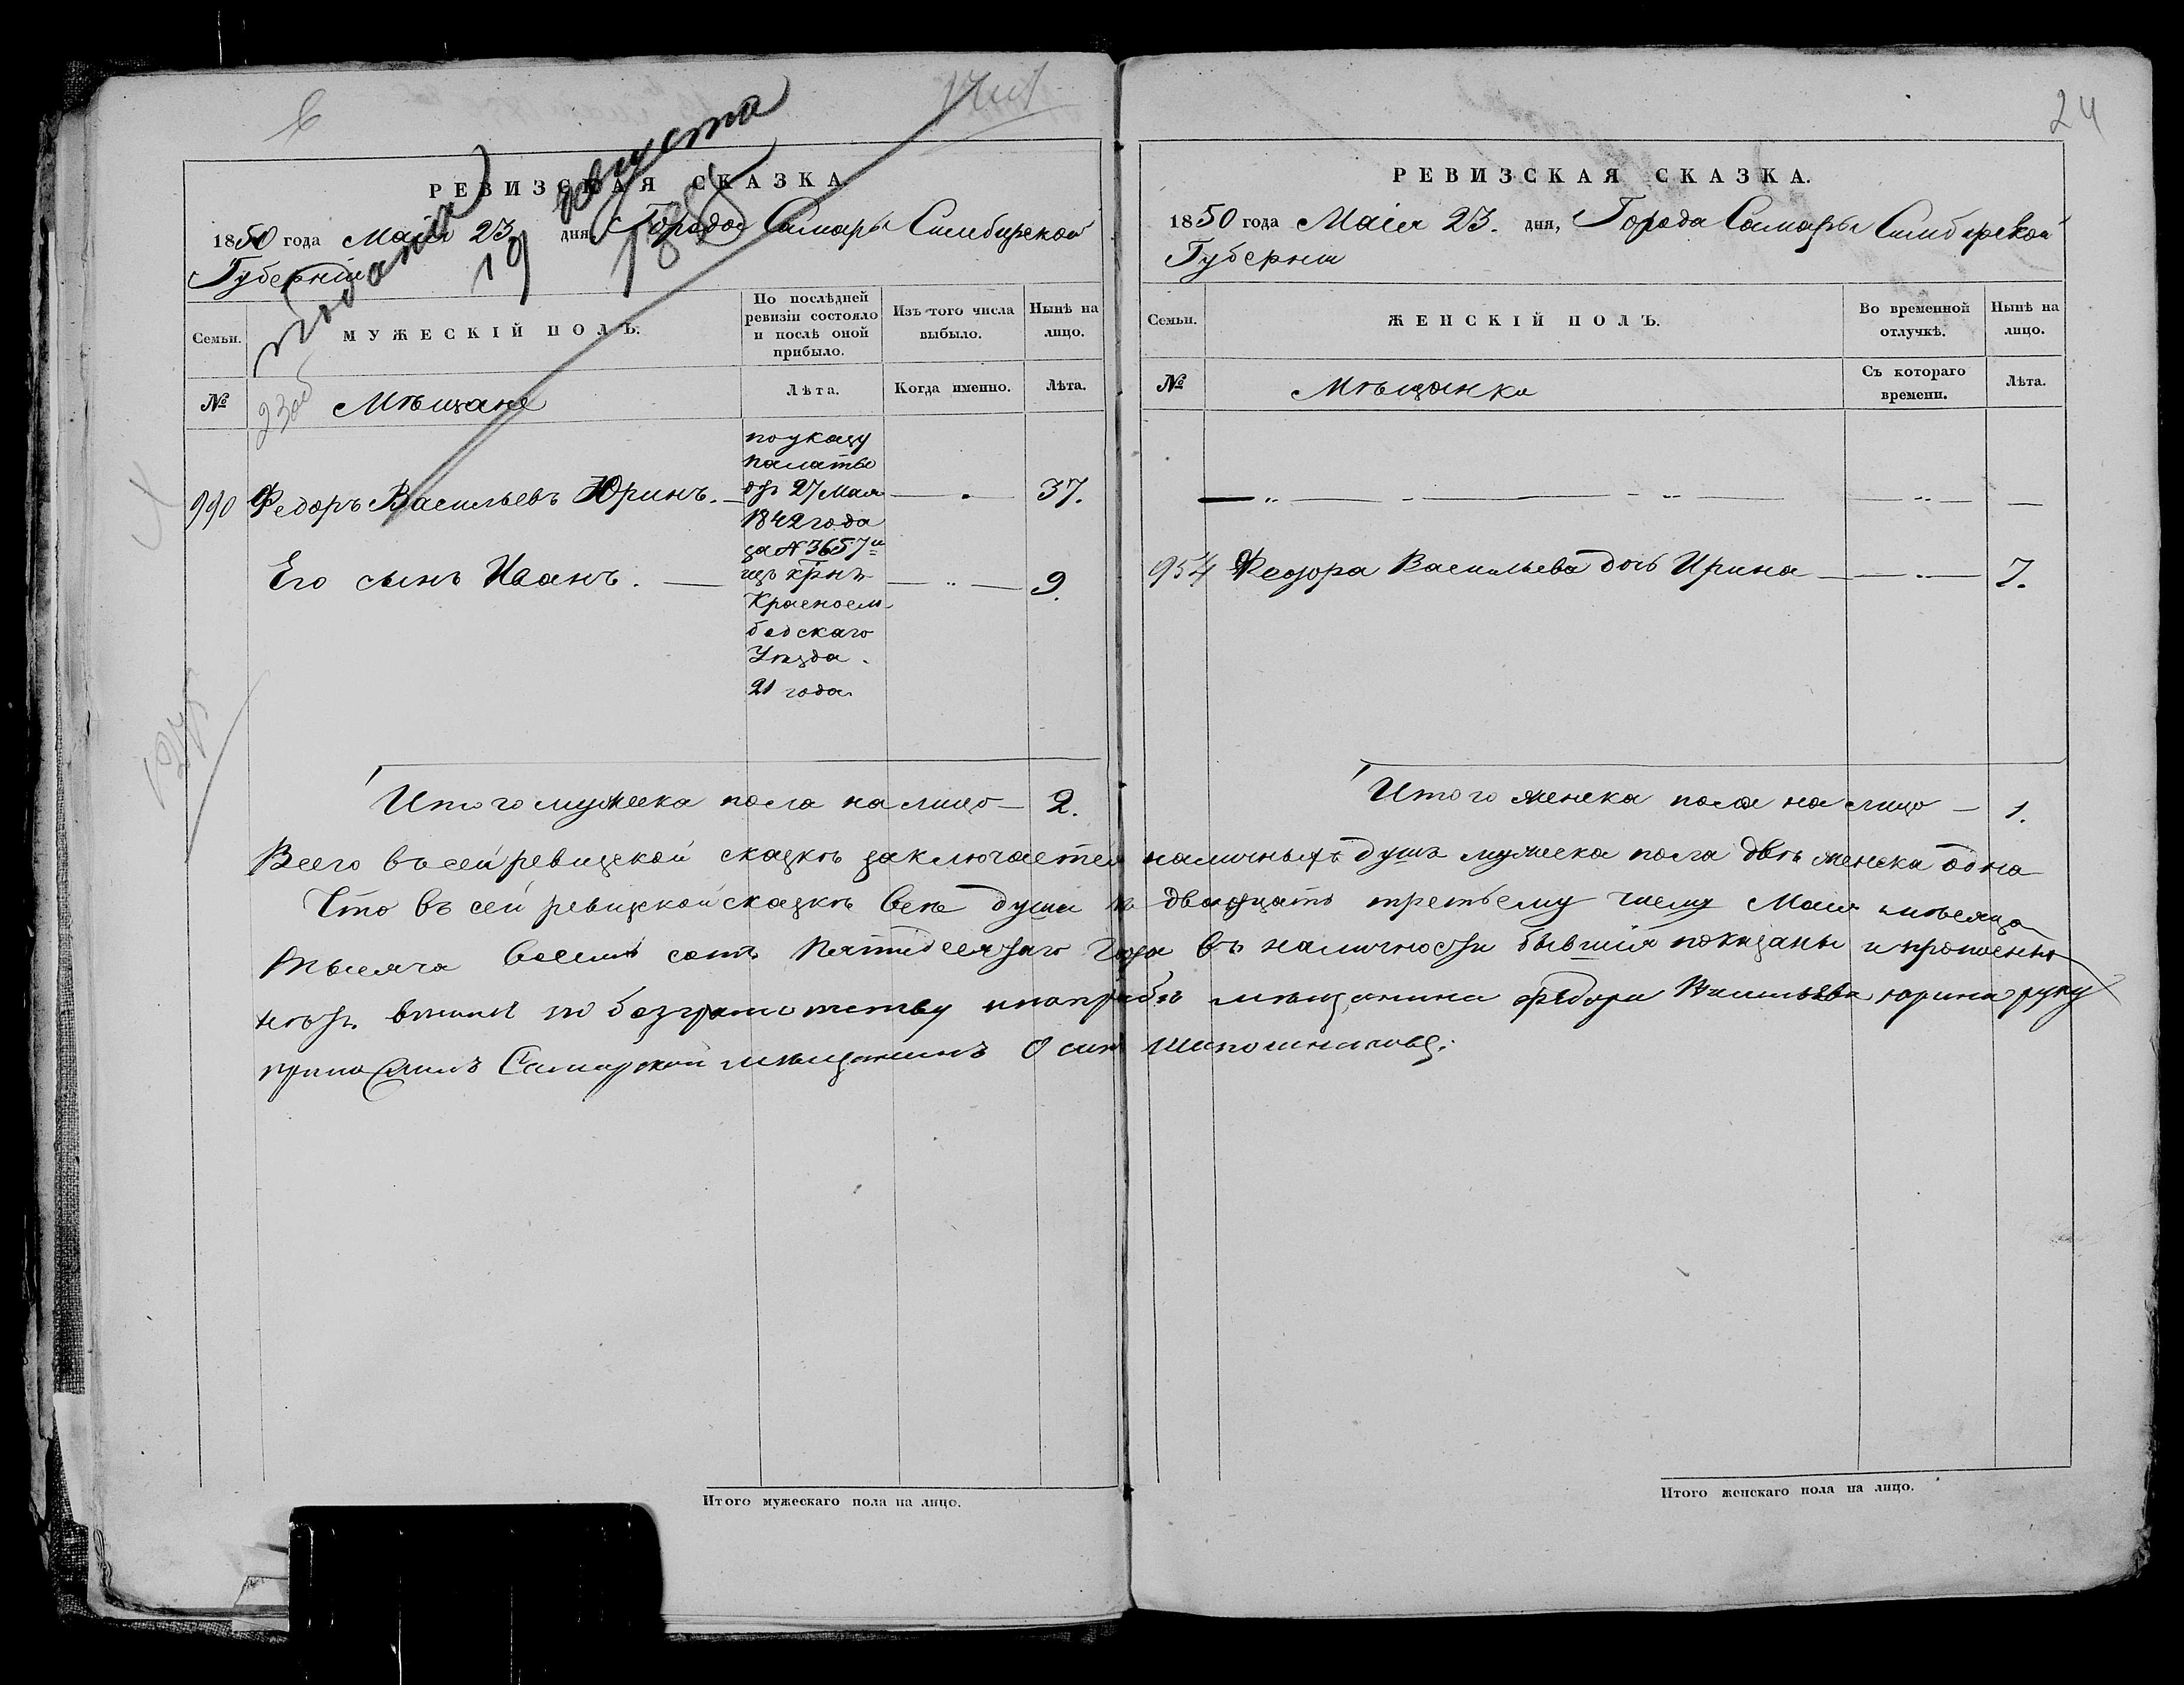 24
РЕВИЗСКАЯ СКАЗКА.
1850 года Маія 23 дня, Города Самары Симбирской
Губерніи
19 августа
Семьи.
МУЖЕСКІЙ ПОЛЪ.
По послѣдней ревизіи состояло и послѣ оной прибыло.
Изъ того числа выбыло.
Нынѣ на лицо.
№
Мѣщане
Лѣта.
Когда именно.
Лѣта.
990 Федоръ Васильевъ Юринъ. 37.
Его сынъ Иванъ. 9.
по указу
палаты
отъ 27 Мая
1842 года
за № 3657й
изъ крнъ
Красноем
бедскаго
Уѣзда.
21 года
Итого мужеска пола на лицо — 2.
РЕВИЗСКАЯ СКАЗКА.
1850 года Маія 23. дня, Города Самары Симбирской
Губерніи
Семьи.
ЖЕНСКІЙ ПОЛЪ.
Во временной отлучкѣ.
Нынѣ на лицо.
№
Мѣщанки
Съ котораго времени.
Лѣта.
954 Федора Васильева дочь Ирина 7.
Итого женска пола на лицо — 1.
Всего въ сей ревизской сказкѣ заключается наличныхъ душъ мужеска пола двѣ женска одна
Что въ сей ревизской сказкѣ всѣ души къ двадцать третьему числу Маія мѣсяца
тысяча восемь сотъ пятидесятаго года въ наличности бывшія показаны и пропенно
нѣтъ по безграмотству мѣщанина Федора Васильева Юрина руку
приложилъ Самарской мѣщанинъ Осип Шапошниковъ.
Итого мужескаго пола на лицо.
Итого женскаго пола на лицо.